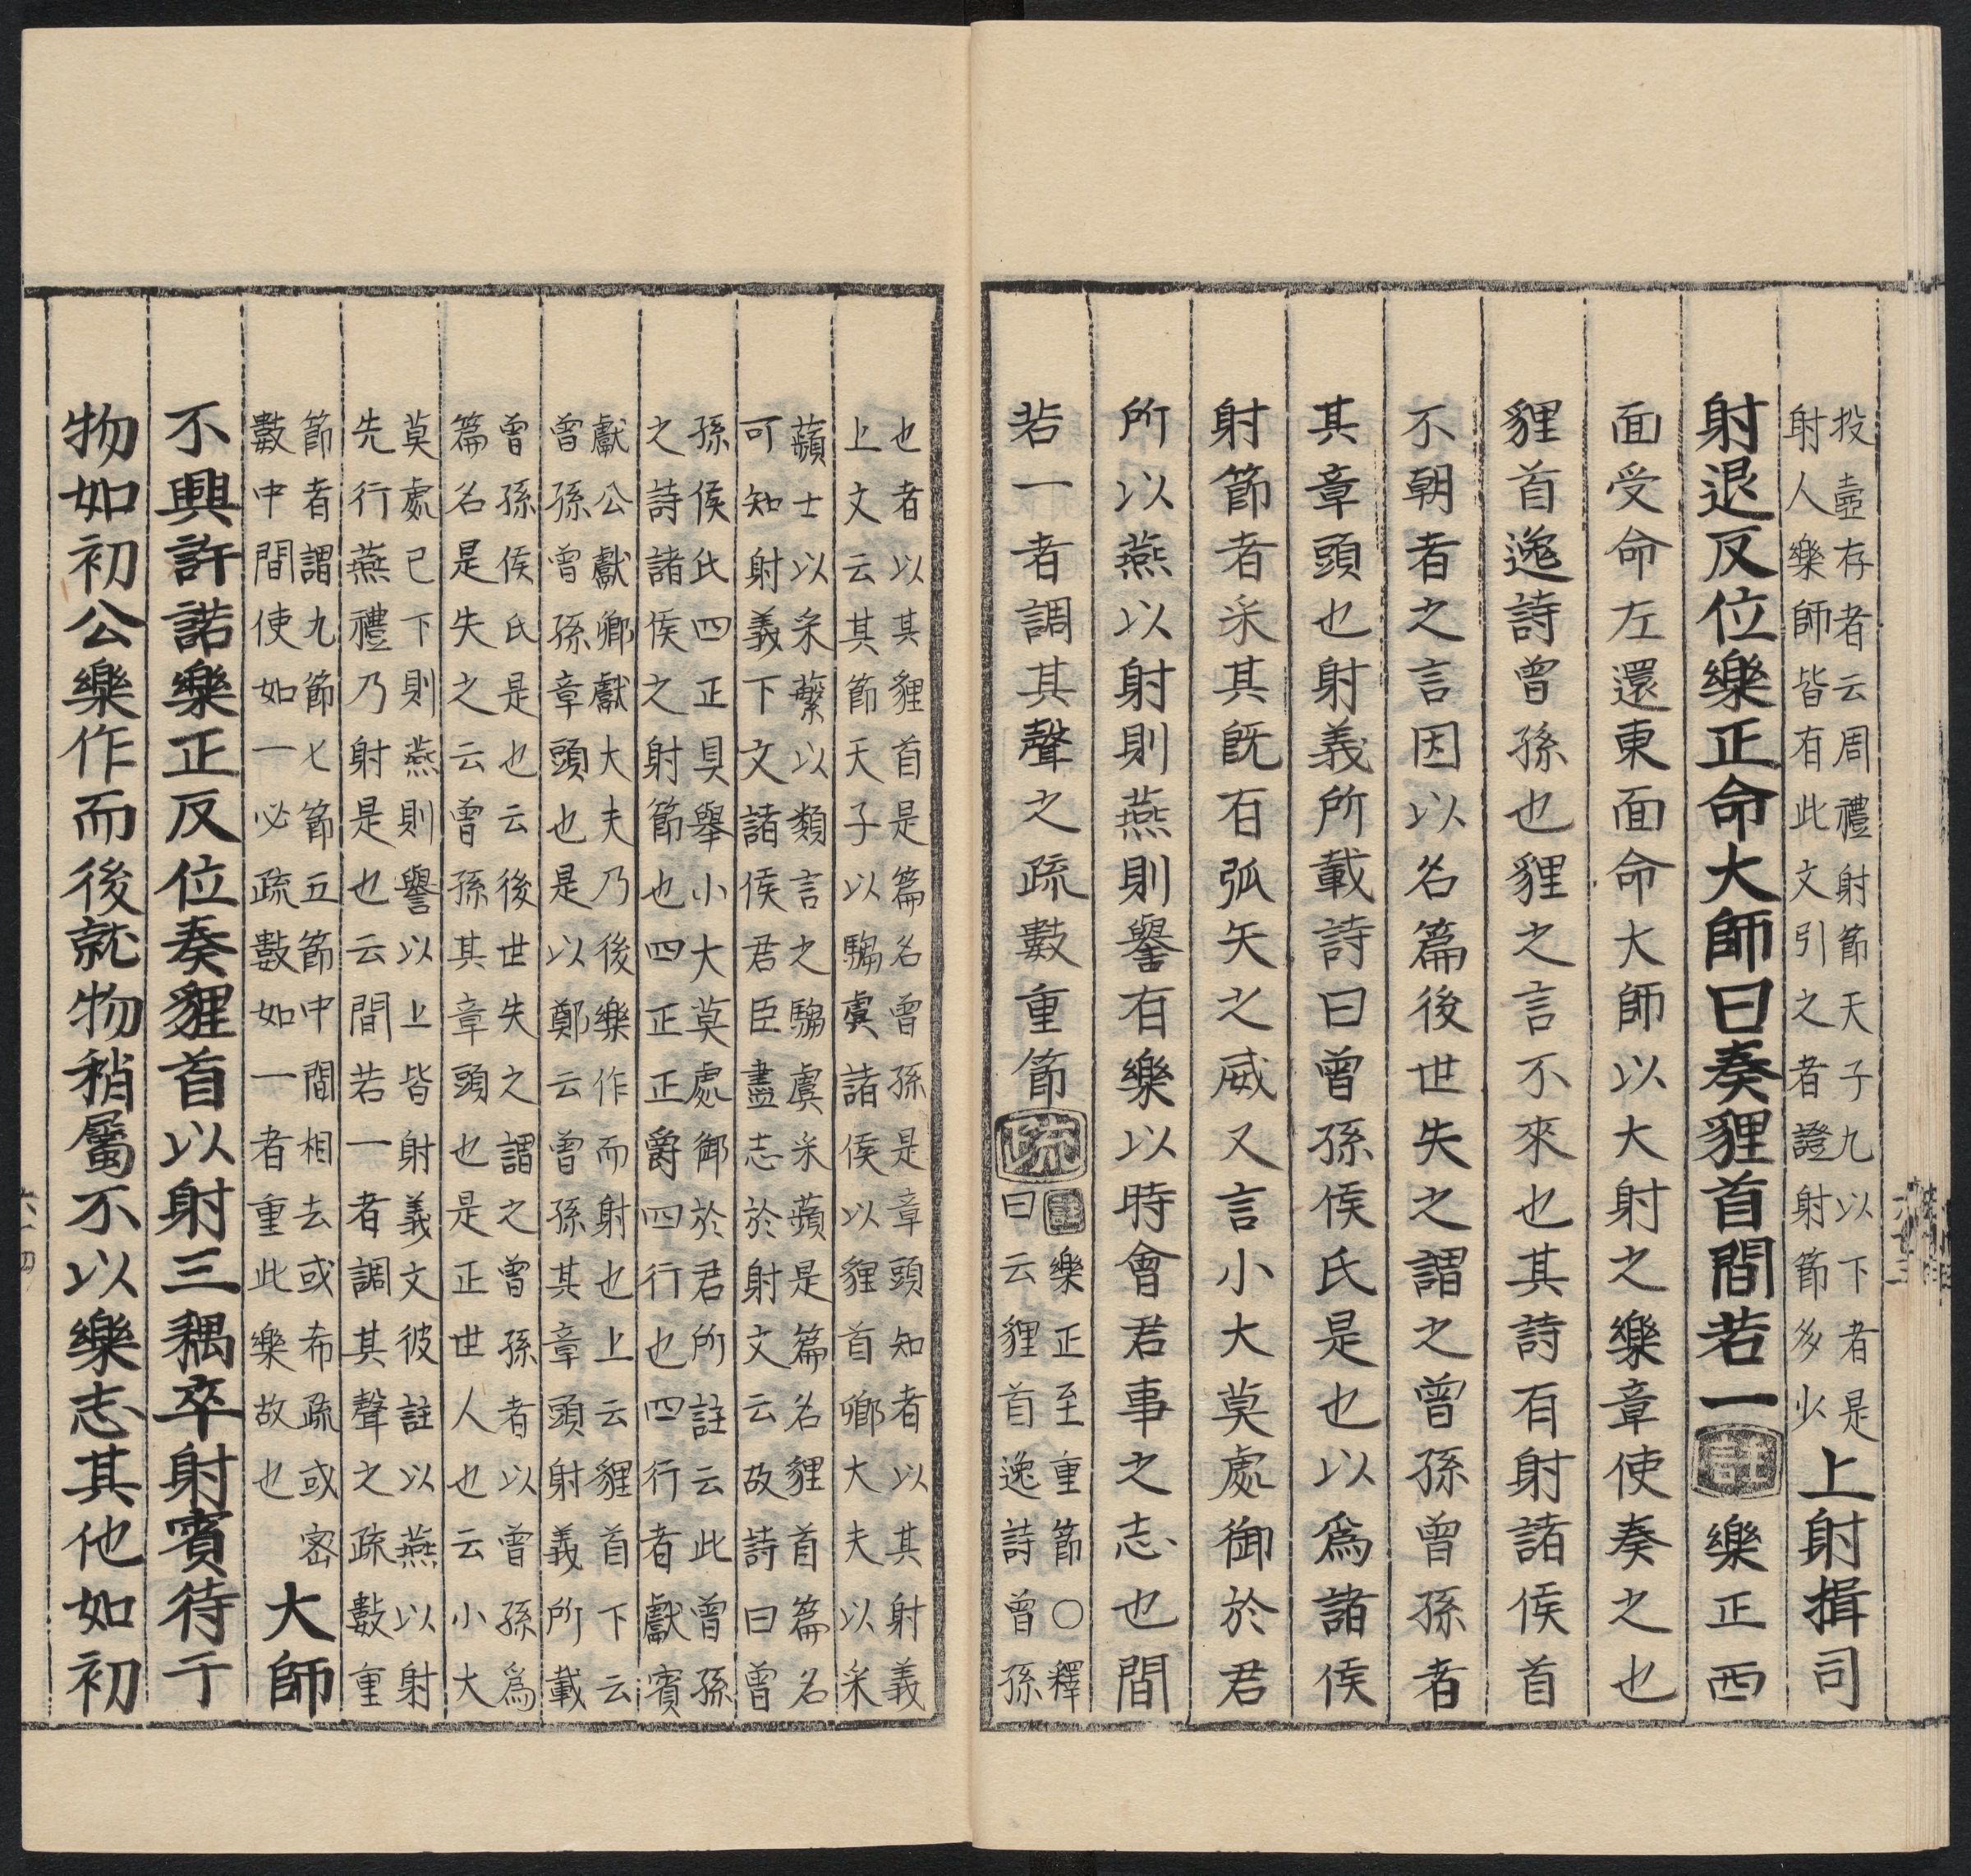 投壺存者云周禮射節天子九以下者是
射人樂師皆有此文引之者證射節多少
上射揖司
射退反位樂正命大師曰奏貍首間若一註樂正西
面受命左還東面命大師以大射之樂章使奏之也
貍首逸詩曾孫也貍之言不來也其詩有射諸侯首
不朝者之言因以名篇後世失之謂之曾孫曾孫者
其章頭也射義所載詩曰曾孫侯氏是也以為諸侯
射節者采其既有弧矢之威又言小大莫處御於君
所以燕以射則燕則譽有樂以時會君事之志也間
若一者調其聲之疏數重節疏
樂正至重節○釋
曰云貍首逸詩曾孫
也者以其貍首是篇名曾孫是章頭知者以其射義
上文云其節天子以騶虞諸侯以貍首卿大夫以采
蘋士以采蘩以類言之騶虞采蘋是篇名貍首篇名
可知射義下文諸侯君臣盡志於射文云故詩曰曾
孫侯氏四正具舉小大莫處御於君所註云此曾孫
之詩諸侯之射節也四正正爵四行也四行者獻賓
獻公獻卿獻大夫乃後樂作而射也上云貍首下云
曾孫曾孫章頭也是以鄭云曾孫其章頭射義所載
曾孫侯氏是也云後世失之謂之曾孫者以曾孫為
篇名是失之云曾孫其章頭也是正世人也云小大
莫處已下則燕則譽以上皆射義文彼註以燕以射
先行燕禮乃射是也云間若一者調其聲之疏數重
節者謂九節七節五節中間相去或希疏或密
數中間使如一必疏數如一者重此樂故也
大師
不興許諾樂正反位奏貍首以射三耦卒射賓待于
物如初公樂作而後就物稍屬不以樂志其他如初